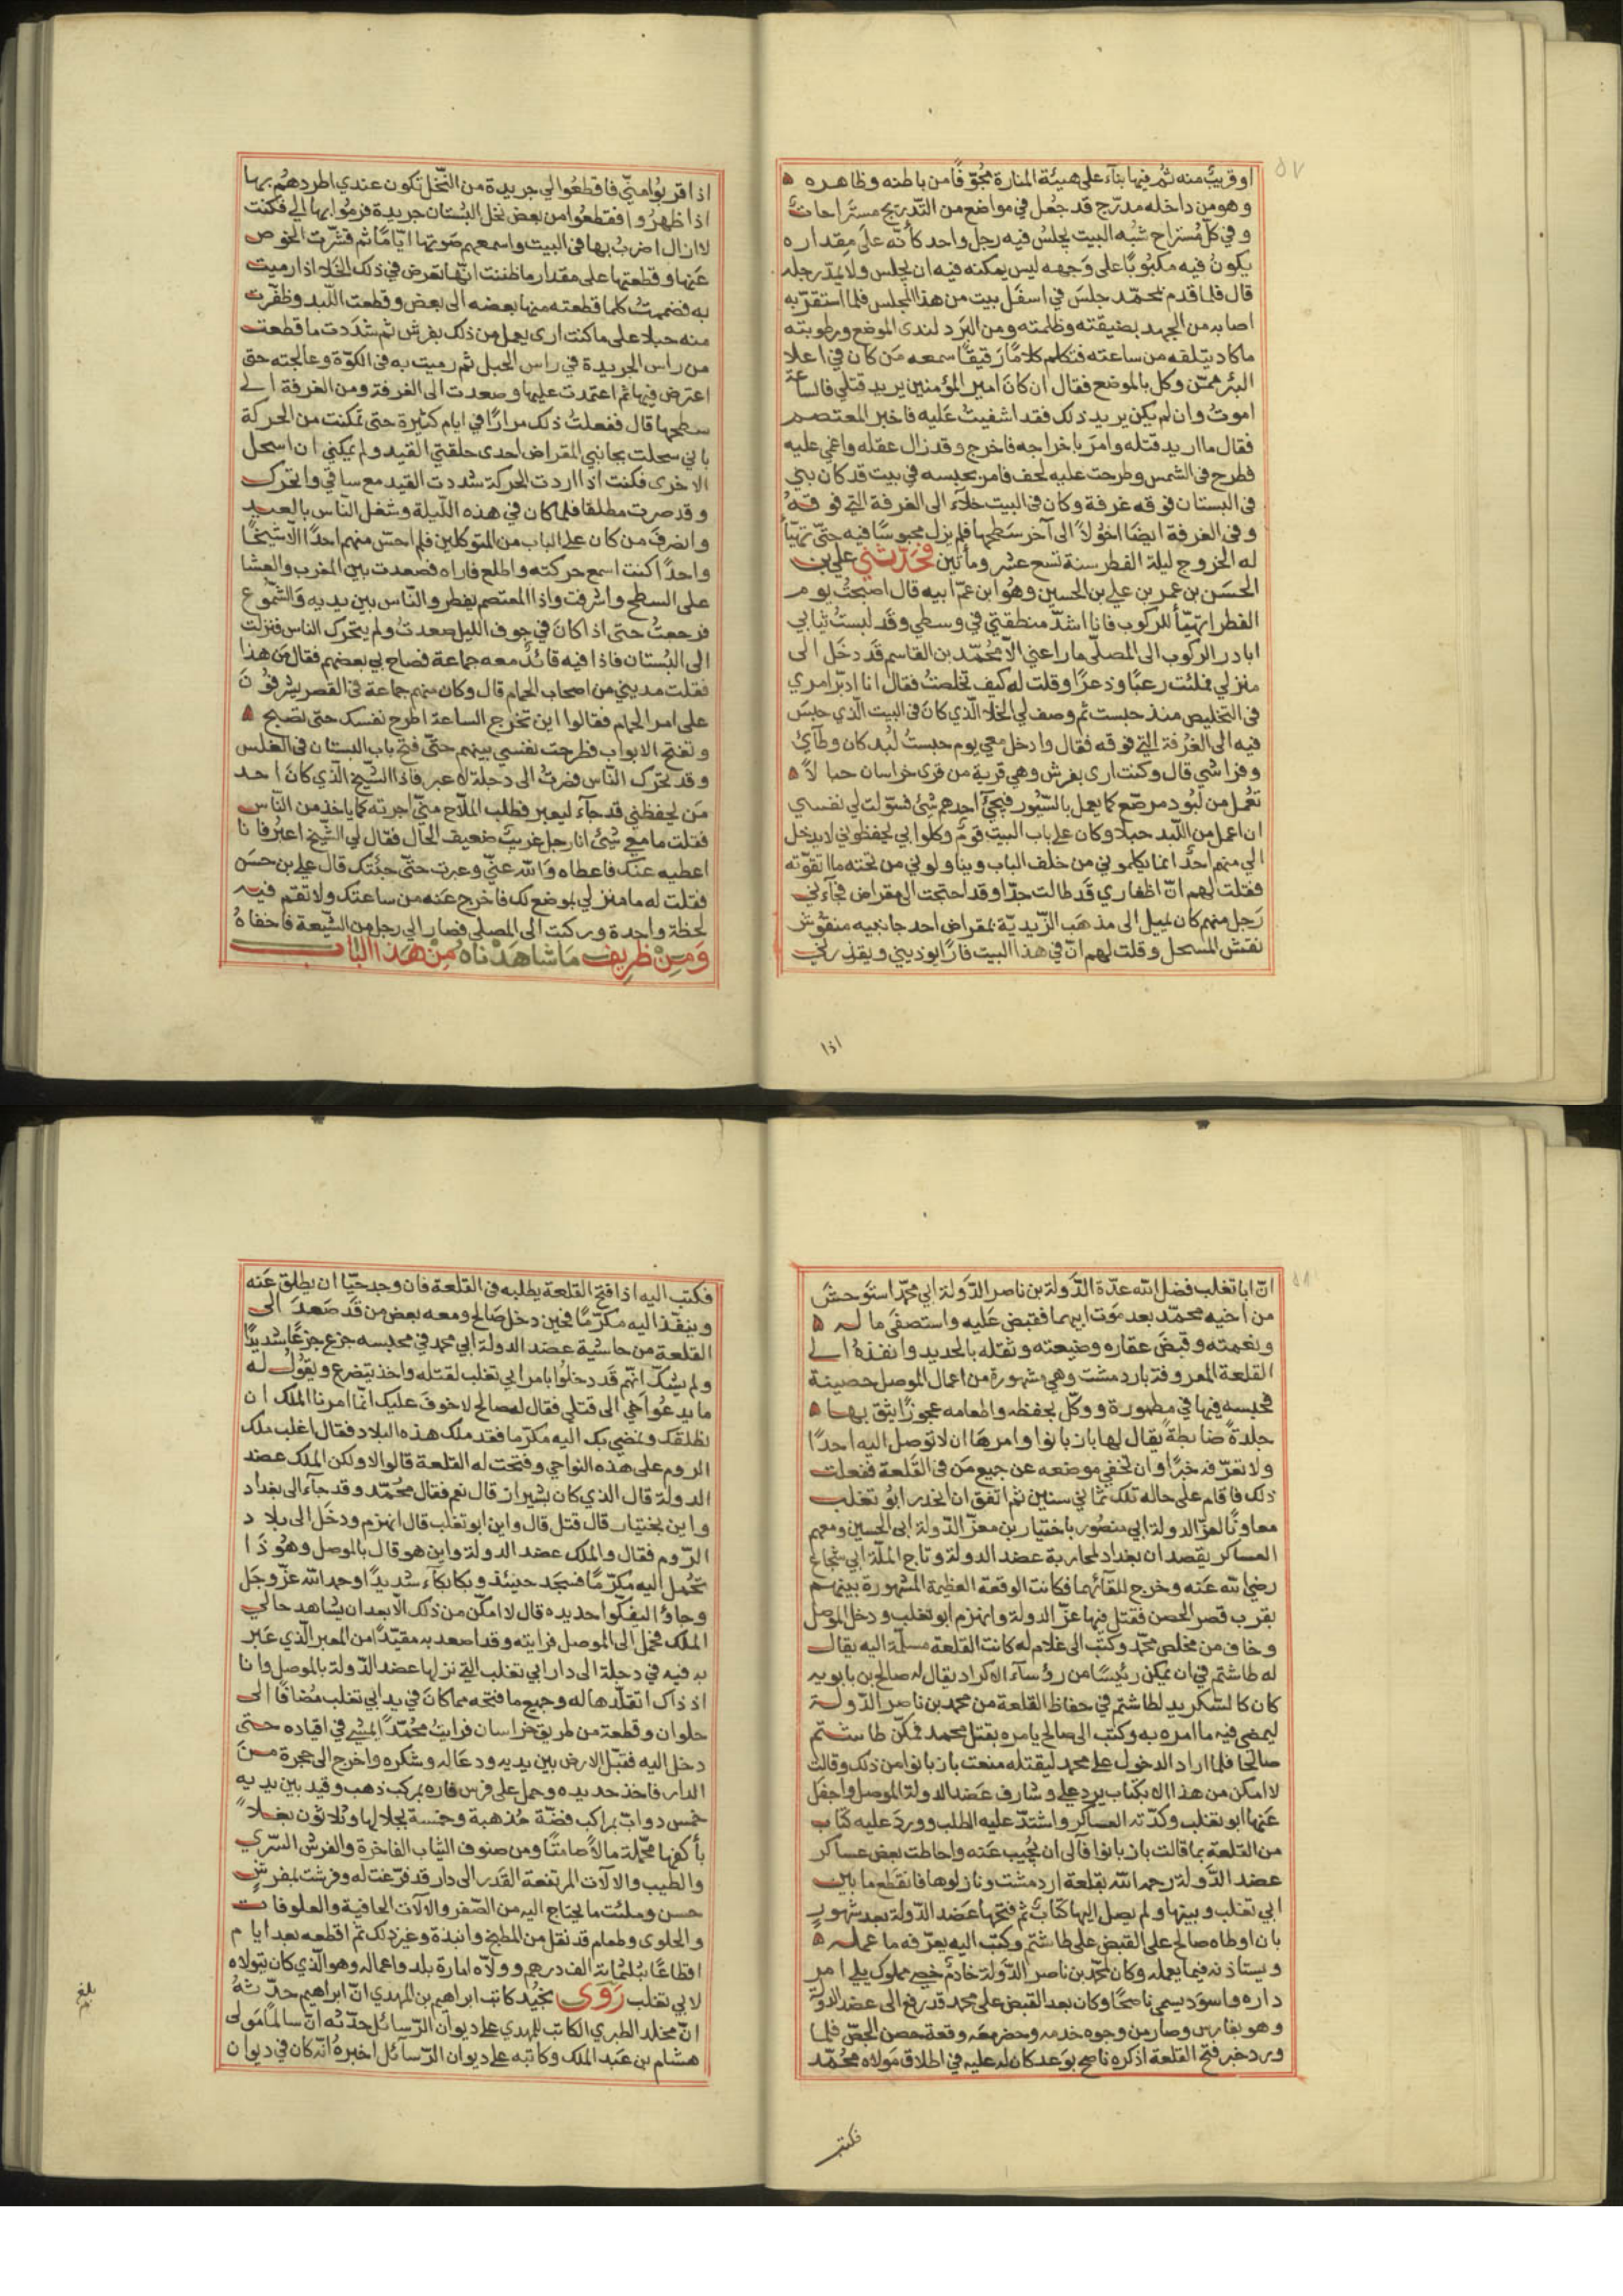 ٥٧
او قريبٌ منه ثم فيها بناء على هيئة المنارة مجوّفًا من باطنه وظاهره ه
وهو من داخله مدرّج قد جعل في مواضع من التدريج مستراحات
وفي كلّ مُستراح شبُه البيت يجلسُ فيه رجل واحد كأنّه على مقداره
يكونُ فيه مكبُوبًا على وَجهه ليس يمكنه فيه ان يجلس ولا يمدّ رجله
قال فلما قدم بمحمّد جلسَ في اسفَل بيت من هذا المجلس فلما استقرّ به
اصابه من الجهد بضيقته وظلمته ومن البَرد لندى الموضع ورطوبته
ما كاد يتلفه من ساعته فتكلم كلامًا رَقيقًا سمعه مَن كان في اعلا
البئر ممّن وكل بالموضع فقال ان كانَ امير المؤمنين يريد قتلي فالساعَة
اموتُ وان لم يكن يريد ذلك فقد اشفيتُ عَليه فاخبر المعتصم
فقال ما اريد قتله وامرَ باخراجه فاخرج وقد زال عقله واغمي عليه
فطرح في الشمس وطرحت عليه لحف فامر بحبسه في بيت قد كان بني
في البستان فوقه غرفة وكان في البيت خلآء الى الغرفة التي فوقهُ
وفي الغرفة ايضًا اخوُلا الى آخر سَطحها فلم يزل محبوسًا فيه حتّى تهيّأ
له الخروج ليلة الفطر سنة تسع عشر ومأتين وَحَدّثني علي بن
الحسَن بن عمر بن علي بن الحسين وهُوا بن عمّ ابيه قال اصبحتُ يوم
الفطر اتهيّأ للركوب فانا اشدّ منطقتي في وسطي وقد لبستُ ثيابي
ابادر الركوب الى المصلّى ما راعني الّا محُمّد بن القاسم قَد دخَل الى
منزلي فملئت رعبًا وذعرًا وقلت له كيف تخلصتُ فقال انا ادبّر امري
في التخليص منذ حبست ثم وصف لي الخلا الّذي كانَ في البيت الّذي حبسَ
فيه الى الغُرفة التي فوقه فقال وادخل معي يوم حبستُ لُبد كان وطآئ
وفراشي قال وكنت ارى بفرش وهي قرية من قرى خراسان حبالاً ه
تعُمل من لُبُود مرصّع كما يعمل بالسّيُور فيجئ احدهم شئ فسوّلت لي نفسي
ان اعمل من اللّبد حبلا وكان على باب البيت قومٌ وكلوا بي يحفظوني لا يدخل
الي منهم احدٌ انما يكلموني من خلف الباب ويناولوني من تحته ما اتقوّته
فقلت لهم انّ اظفاري قَد طالت جدًّا وقد احتجت الى مقراض فجآءني
رَجل منهم كان يميل الى مذهَب الزّيديّة بمقراض احد جانبيه منقوُش
نقش المسحل وقلت لهم انّ في هذا البيت فارًا يوذيني ويقذرني
اذا
اذا قربُوا منّي فاقطعُوا لي جريدة من النّخل تكون عندي اطردهُم بها
اذا ظهرُوا فقطعُوا من بعض نخل البُستان جريدة فرموُا بها الي فكنت
لا ازال اضربُ بها في البيت واسمعهم صَوتها ايّامًا ثم قشّرت الخوص
عَنها وقطعتها على مقدار ما ظننت انّها تعرض في ذلك الخَلا اذا رميت
به فضممتُ كلما قطعته منها بعضه الى بعض وقطعت اللّبد وظفّرت
منه حبلا على ما كنت ارى يعمل من ذلك بفرش ثم شدَدت ما قطعت
من راس الجريدة في راس الحبل ثم رميت به في الكوّة وعالجته حتى
اعترض فيها ثم اعتمدت عليها وصعدت الى الغرفة ومن الغرفة الى
سطحها قال ففعلتُ ذلك مرارًا في ايام كثيرة حتى تمكنت من الحركة
باني سحلت بجانبي المقراض احدى حلقتي القيد ولم يمكني ان اسحل
الاخرى فكنت اذا اردت الحركة شددت القيد مع ساقي واتحرك
وقد صرت مطلقا فلما كان في هذه اللّيلة وشغل النّاس بالعيد
وانصرفَ من كان على الباب من المتوكلين فلم احسّ منهم احدًا الّا شيخًا
واحدًا كنت اسمع حركته واطلع فاراه فصعدت بين المغرب والعشا
على السطح واشرفت واذا المعتصم يفطر والنّاس بين يديه وَالشّموُع
فرجعتُ حتى اذا كانَ في جوف الليل صعدتُ ولم يتحرّك الناس فنزلت
الى البُستان فاذا فيه قائدٌ معه جماعة فصاح بي بعضهم فقال مَن هذا
فقلت مديني من اصحاب الحمام قال وكان منهم جماعة في القصر يشرفوُنَ
على امر الحمام فقالوا اين تخرج الساعة اطرح نفسك حتى تصبح ه
وتفتح الابواب فطرحت نفسي بينهم حتّى فتح باب البستان في الغلس
وقد تحرّك النّاس فصرتُ الى دجلة لا عبر فاذا الشّيخ الّذي كانَ احد
مَن يحفظني قد جآء ليعبر فطلب الملّاح منّي اجرته كما ياخذ من النّاس
فقلت ما معي شئ انا رجل غريبٌ ضعيف الحال فقال لي الشّيخ اعبُر فانا
اعطيه عنك فاعطاه وَاللّه عنّي وعبرت حتّى جئتك قال علي بن حسَن
فقلت له ما منزلي بموضع لك فاخرج عَنه من ساعتك ولا تقم فيه
لحظة واحدة وركبت الى المصلى فصار الي رجل من الشّيعة فاخفاهُ
وَمِنْ ظريف مَا شاهَدْناه مِنْ هَذا الباب
٥٨
انّ ابا تغلب فضل اللّه عدّة الدّولة بن ناصر الدّولة ابي محمّد استَوحشَ
من اخيه محمّد بعد مَوت ابيهما فقبض عَليه واستصفَى ماله ه
ونعمته وقبضَ عقاره وضيعته وثقله بالحديد وانفذهُ الى
القلعة المعروفة باردمشت وهي مشهورة من اعمال الموصل حصينة
فحبسه فيها في مطمورة ووكّل بحفظه واطعامه عجوزًا يثق بها ه
جلدةً ضابطةً يقال لها بازبانوا وامرهَا ان لا توصل اليه احدًا
ولا تعرّفه خبرًا وان تخفي موضعه عن جميع مَن في القلعة ففعلت
ذلك فاقام على حاله تلك ثماني سنين ثم اتفق ان انحدر ابوُ تغلب
معاونًا لعزّ الدولة ابي منصُور باختيار بن معزّ الدّولة ابي الحسين ومعهم
العساكر يقصدان بغداد لمحاربة عضد الدولة وتاج الملّة ابي شجاع
رضي اللّه عَنه وخرج للقآئهما فكانت الوقعة العظيمة المشهورة بينهم
بقرب قصر الحصن فقتل فيها عزّ الدولة وانهزم ابو تغلب ودخل الموصل
وخاف من مخلص محمّد وكتب الى غلام له كانت القلعة مسلّمة اليه يقال
له طاشتم في ان يمكن رئيسًا من رؤسآء الاكراد يقال له صالح بن بابويه
كان كالشريك لطاشتم في حفاظ القلعة من محمد بن ناصر الدّولة
ليمضى فيه ما امره به وكتب الى صالح يامره بقتل محمد فمكّن طاشتم
صالحًا فلما اراد الدخول على محمد ليقتله منعت بازبانوا من ذلك وقالت
لا امكن من هذا الا بكتاب يرد علي وشارف عَضد الدولة الموصل واجفَل
عَنها ابو تغلب وكدّته العساكر واشتدّ عليه الطلب وورد عليه كتاب
من القلعة بما قالت بازبانوا فآلى ان يجُيب عنه واحاطت بعض عساكر
عضد الدّولة رحمه اللّه بقلعة اردمشت ونازلوها فانقطَع ما بين
ابي تغلب وبينها ولم يصل اليها كتابٌ ثم فتحها عَضد الدّولة بعد شهورٍ
بان اوطاه صالح على القبض على طاشتم وكتب اليه يعرّفه ما عمله ه
ويستاذنه فيما يعمله وكان لمحمّد بن ناصر الدّولة خادمٌ خصي مملوك يلي امر
داره واسوَد يسمى ناصحًا وكان بعد القبض على محمد قد رفع الى عضد الدولة
وهو بفارس وصار من وجوه خدمه وحضر معه وقعة حصن الجصّ فلما
ورد خبر فتح القلعة اذكره ناصح بوَعد كان له عليه في اطلاق مَولاه محُمّد
فكتب
فكتب اليه اذا فتح القلعة يطلبه في القلعة فان وجد حيّا ان يطلق عَنه
وينفّذ اليه مكرّمًا فحين دخل صَالح ومعه بعض من قَد صَعدَ الى
القلعة من حاشية عضد الدولة ابي محمد في محبسه جزع جزعًا شديدًا
ولم يشكّ انّهم قَد دخلوُا بامر ابي تغلب لقتله واخذ يتضرع ويقوُل له
ما يدعُوا اخي الى قتلي فقال له صالح لا خوفَ عليك انّما امرنا الملك ان
نطلقك ونمضي بك اليه مكرّما فقد ملك هذه البلاد فقال اغلب ملك
الروم على هذه النواحي وفتحت له القلعة قالوا لا ولكن الملك عضد
الدولة قال الذي كان بشيراز قال نعم فقال محُمّد وقد جآء الى بغداد
واين بختيار قال قتل قال واين ابو تغلب قال انهزم ودخَل الى بلاد
الرّوم فقال والملك عضد الدولة واين هو قال بالموصل وهُو ذَا
تحُمل اليه مُكرّمًا فسجَد حينئذ وبكا بكآء شديدًا وحمد اللّه عزّ وجَل
وجاؤا ليفكّوا حديده قال لا امكّن من ذلك الّا بعد ان يشاهد حالي
الملك فحمل الى الموصل فرايته وقد اصعد به مقيّدًا من المعبر الّذي عَبر
به فيه في دجلة الى دار ابي تغلب التي نزلها عضد الدّولة بالموصل وانا
اذ ذاك اتقلّدها له وجميع ما فتحه مما كانَ في يد ابي تغلب مُضافًا الى
حلوان وقطعة من طريق خراسان فرايتُ محُمّدًا يمشي في اقياده حتى
دخل اليه فقبّل الارض بين يديه ودعَا له وشكره واخرج الى حجرة منَ
الدار فاخذ حديده وحمل على فرس فاره بمركب ذهب وقيد بين يديه
خمس دوابّ بمراكب فضّة مُذهبة وخمسة بجلالها وثلاثون بغلاً
بأكفها محمّلة مالاً صامتًا ومن صنوف الثياب الفاخرة والفرش السّري
والطيب والالات المرتفعة القدر الى دار قد فرّغت له وفرشت بفرشٍ
حسن وملئت ما يحتاج اليه من الصّفر والالات الجافية والعلوفات
والحلوى وطعام قد نقل من المطبخ وانبذة وغير ذلك ثم اقطعه بعد ايام
اقطاعًا بثلثمائة الف درهم وولّاه امارة بلد واعماله وهو الّذي كان يتولاه
لابي تغلب رَوَى بخيُد كاتب ابراهيم بن المهدي انّ ابراهيم حدّثهُ
انّ مخلد الطبري الكاتب للمهدي على ديوان الرّسائل حدّثه انّ سالمًا مَولى
هشام بن عَبد الملك وكاتبه على ديوان الرّسآئل اخبرهُ انّه كان في ديوان
بلغ